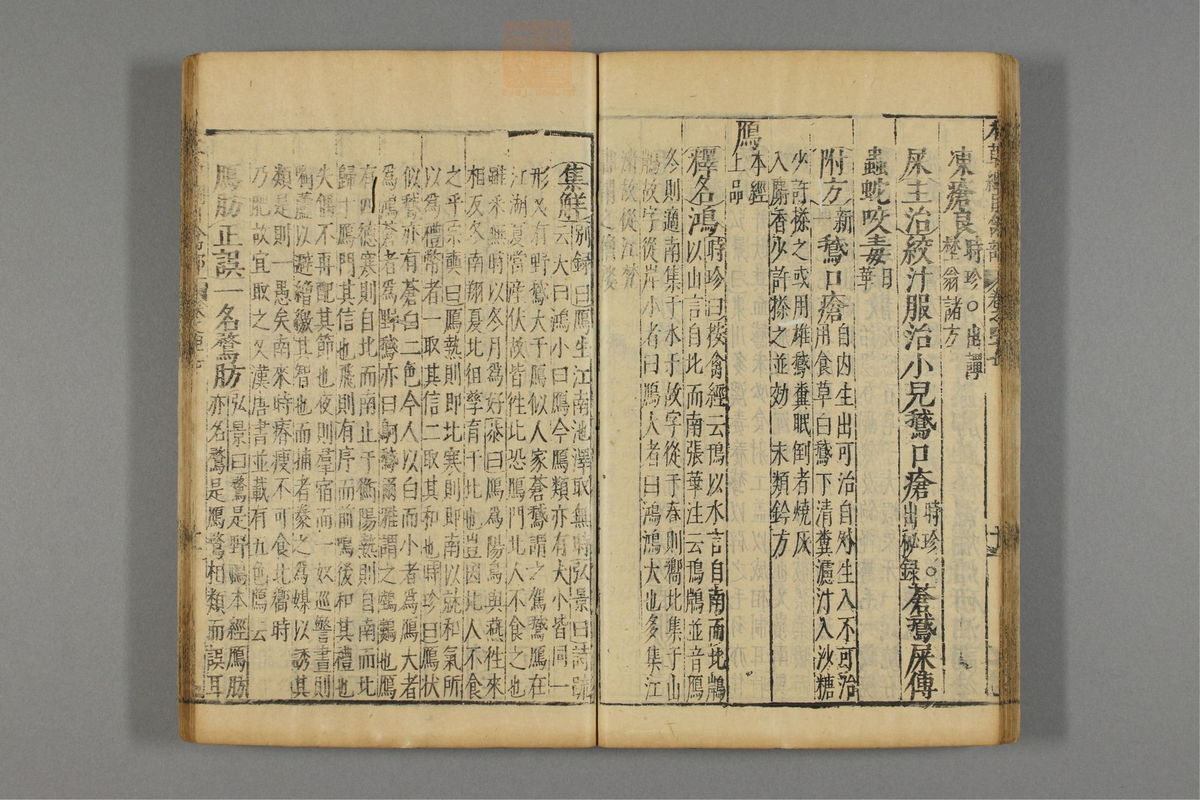 凍瘡良時珍○出譚
埜翁諸方
屎主治絞汁服治小兒鵝口瘡時珍○出秘錄蒼鵝屎傅
蟲蛇咬毒日華
附方新一鵝口瘡自内生出可治自外生入不可治
用食草白鵝下清糞濾汁入沙糖
少許搽之或用雄鵝糞眠倒者燒灰
入麝香少許搽之並効 永類鈐方
鴈本經上品
釋名鴻時珍曰按禽經云鳱以水言自南而北鴈
以山言自北而南張華注云鳱鴈並音鴈
冬則適南集于水于故字從于春則嚮北集于山
鴈故字從岸小者曰鴈大者曰鴻鴻大也多集江
渚故從江
集解别録曰鴈生江南池澤取無時弘景曰詩疏
云大曰鴻小曰鴈今鴈類亦有大小皆同一
形又有野鵝大于鴈似人家蒼鵝謂之駕鵝鴈在
江湖夏當產伏故皆往北恐鴈門北人不食之也
雖采無時以冬月為好恭曰鴈為陽鳥與燕往來
相反冬南翔夏北徂孳育于北也豈因北人不食
之乎宗奭曰鴈熱則即北寒則即南以就和氣所
以為禮幣者一取其信二取其和也時珍曰鴈狀
似鵝亦有蒼白二色今人以白而小者為鴈大者
為鴻蒼者為野鵝亦曰鴚鵝爾雅謂之鵱鷜也鴈
有四德寒則自北而南止于衡陽熱則自南而北
歸于鴈門其信也飛則有序而前鳴後和其禮也
失偶不再配其節也夜則羣宿而一奴巡警晝則
啣蘆以避繒繳其智也而捕者豢之為媒以誘其
類是則一愚矣南來時瘠瘦不可食北嚮時
乃肥故宜取之又漢唐書並載有五色鴈云
鴈肪正誤一名鶩肪弘景曰鶩是野鴨本經鴈肪
亦名鶩是鴈鶩相類而誤耳